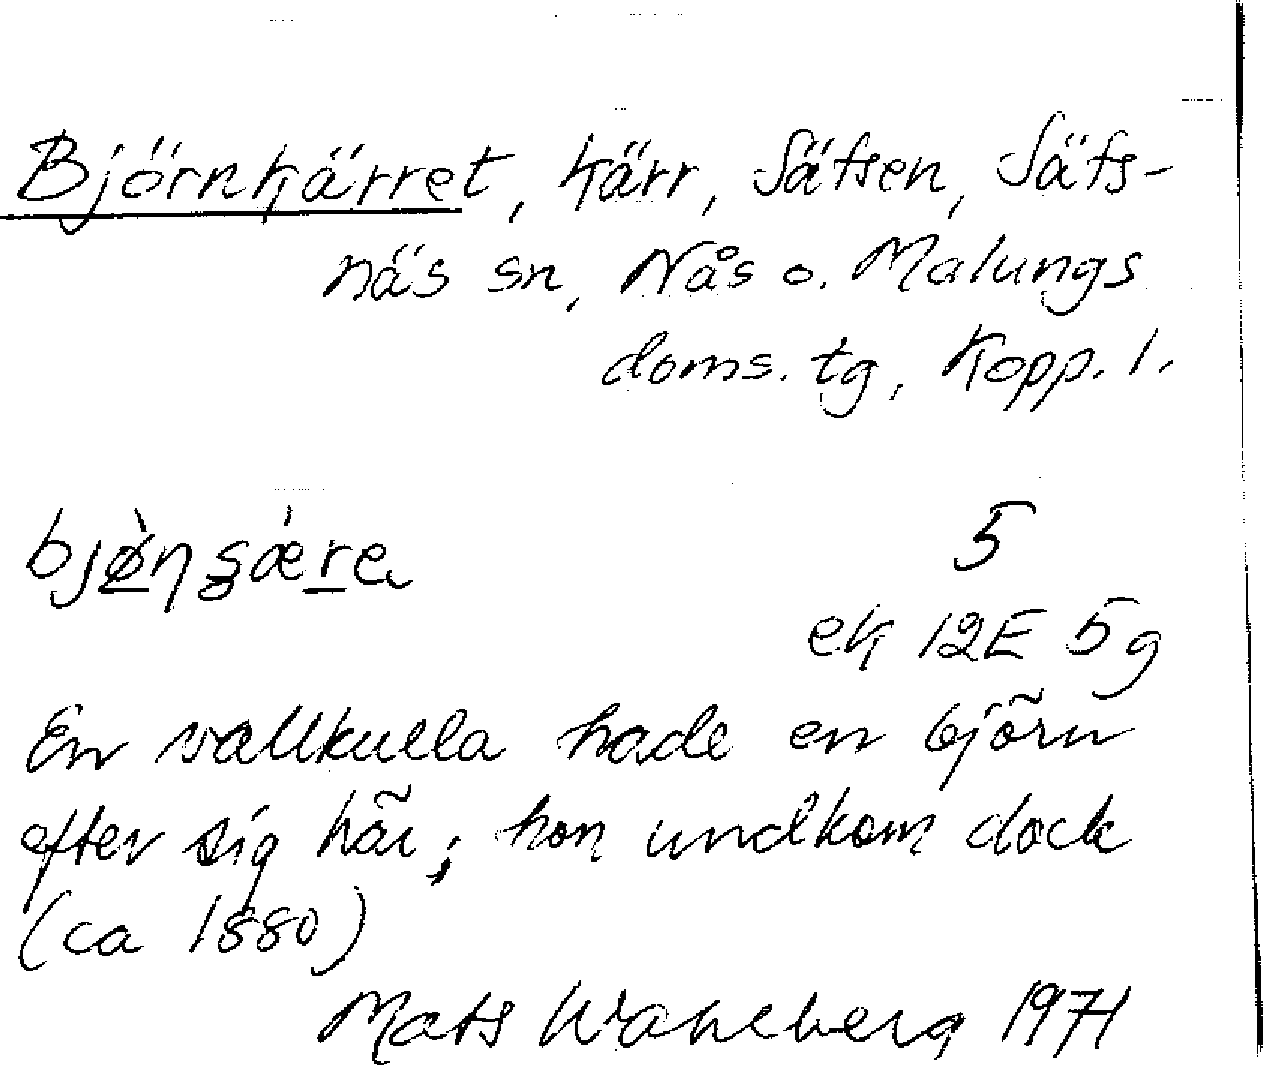 Björnkärret, kärr, Säfsen, Säfs-
näs sn, Nås o. Malungs
doms. tg, Kopp. l.
5
ek 12E 5g
En vallkulla hade en björn
efter sig här; hon undkom dock
(ca 1880)
Mats Wahlberg 1971